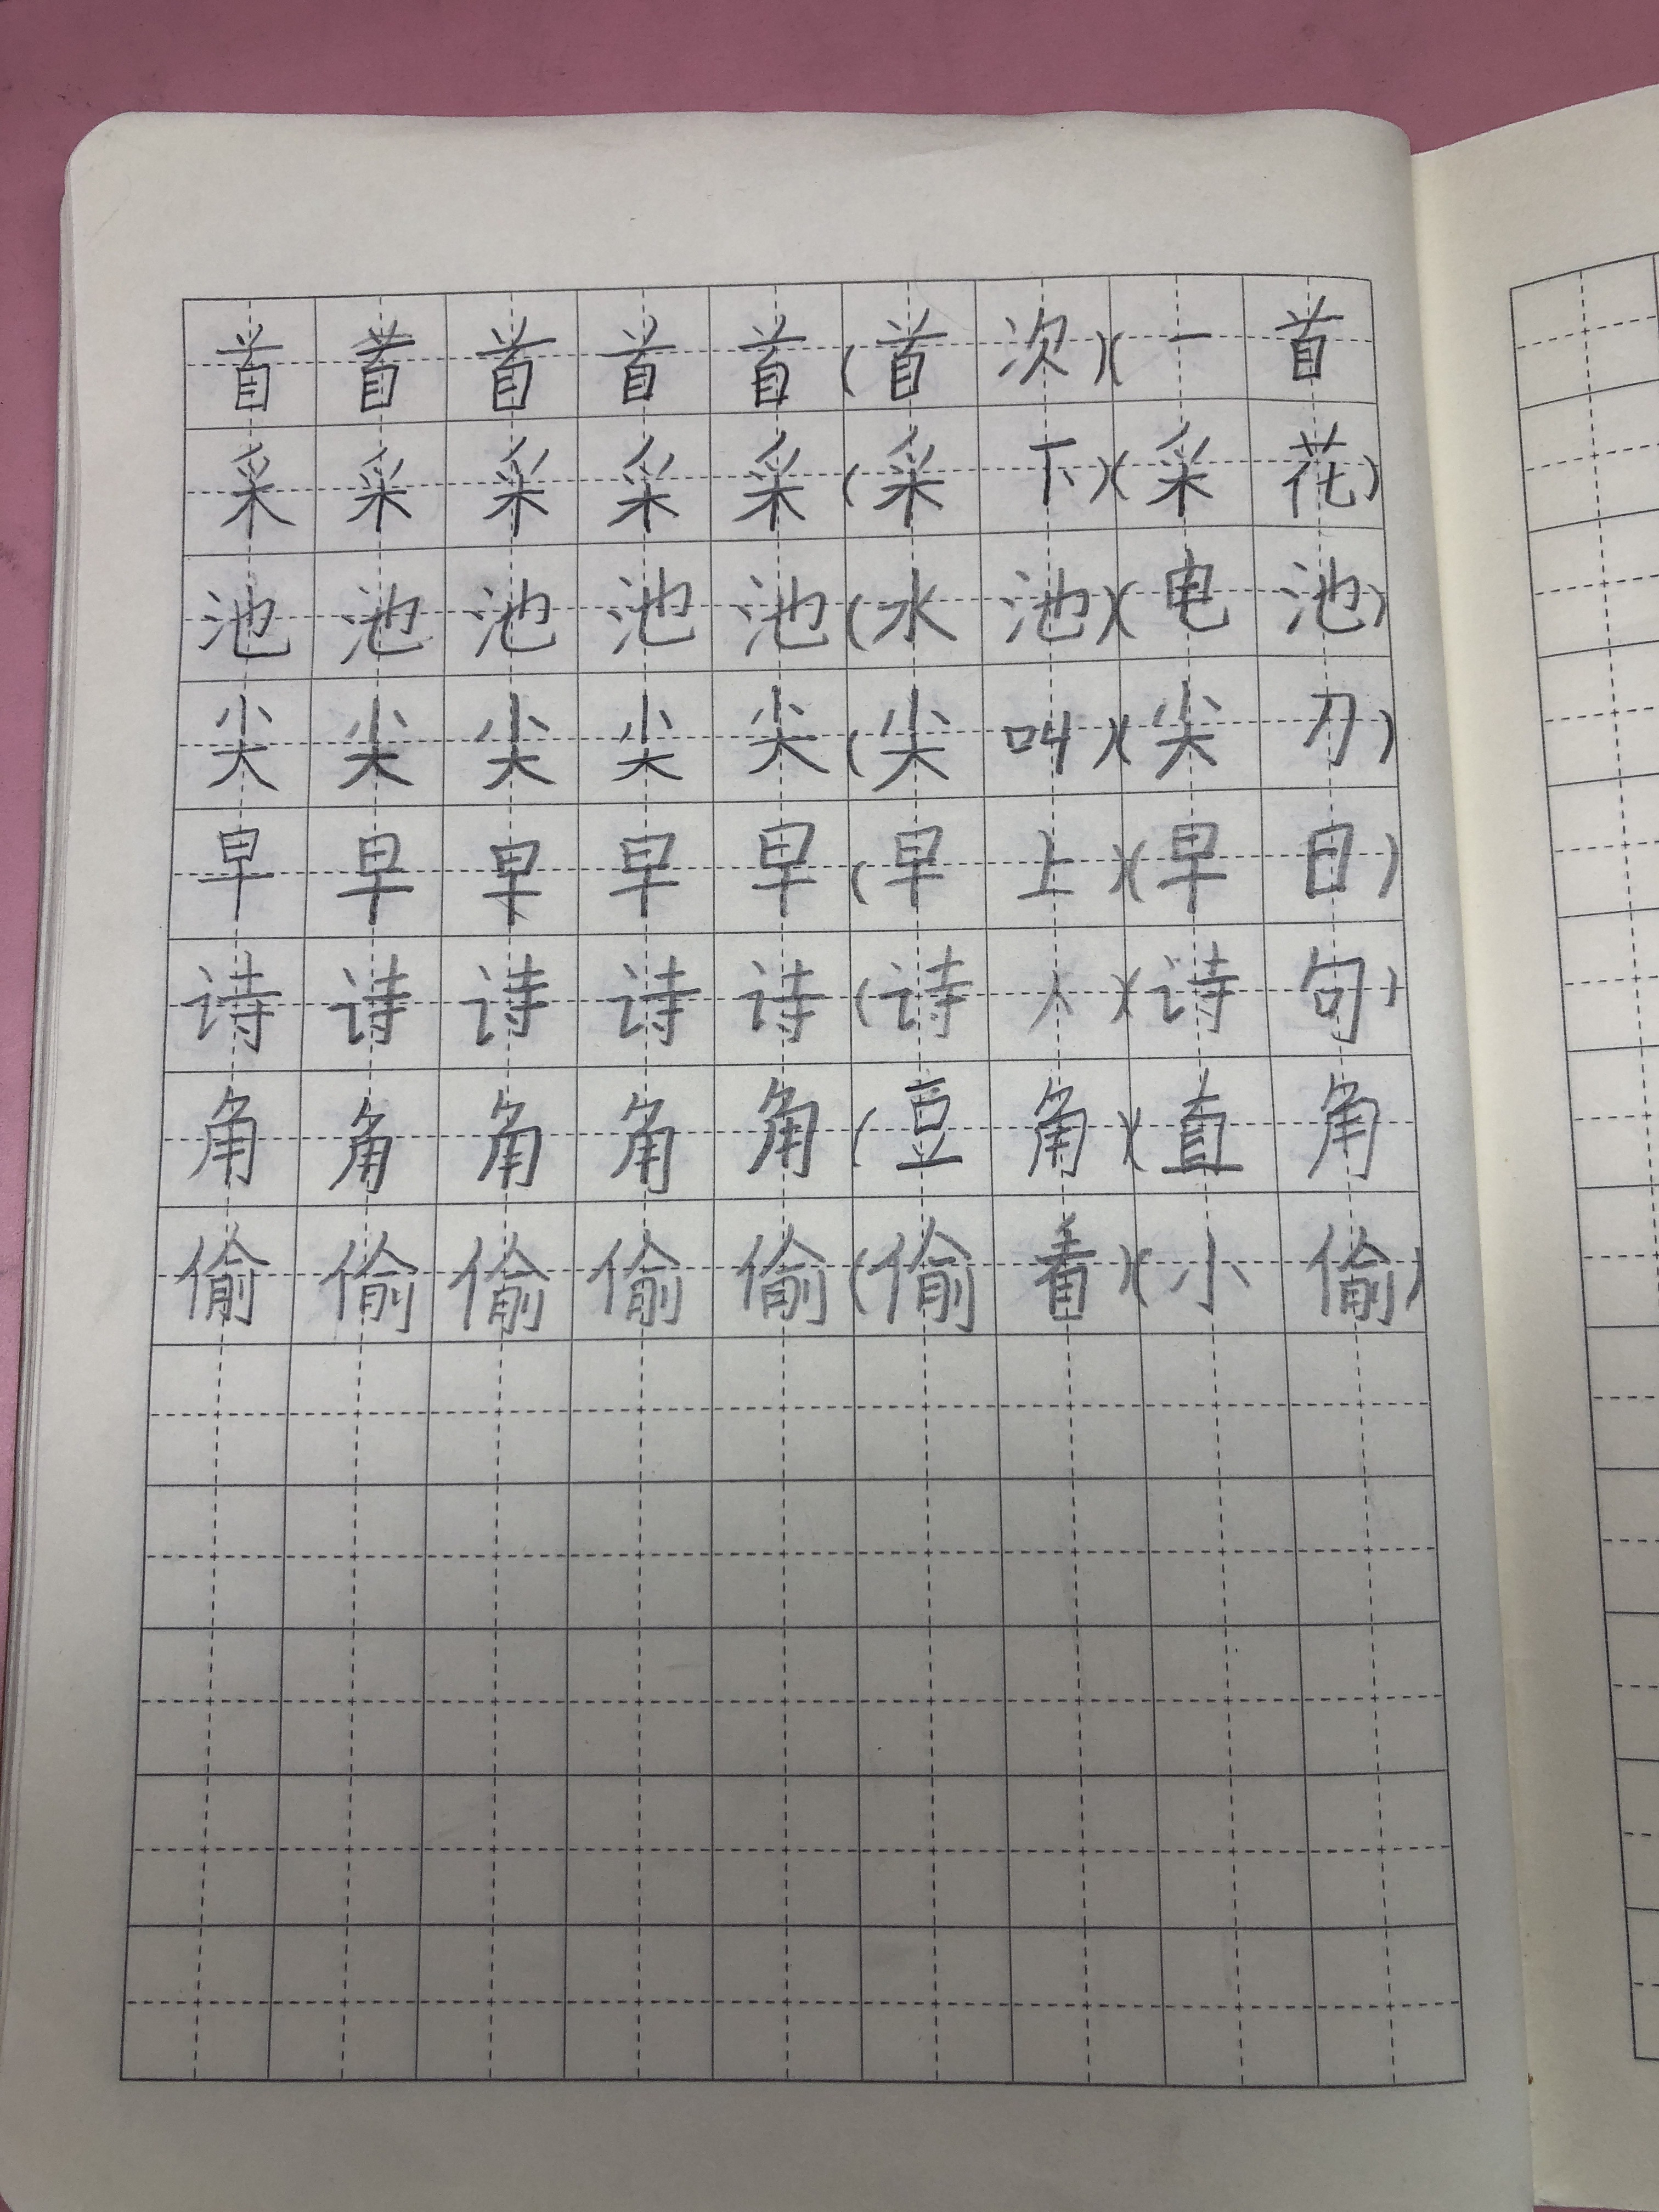 首首首首首(首次)(一首
采采采采采(采下)(采花)
池池池池池(水池)(电池)
尖尖尖尖尖(尖叫)(尖刀)
早早早早早(早上)(早日)
诗诗诗诗诗(诗人)(诗句)
角角角角角(豆角)(直角
偷偷偷偷偷(偷看)(小偷)